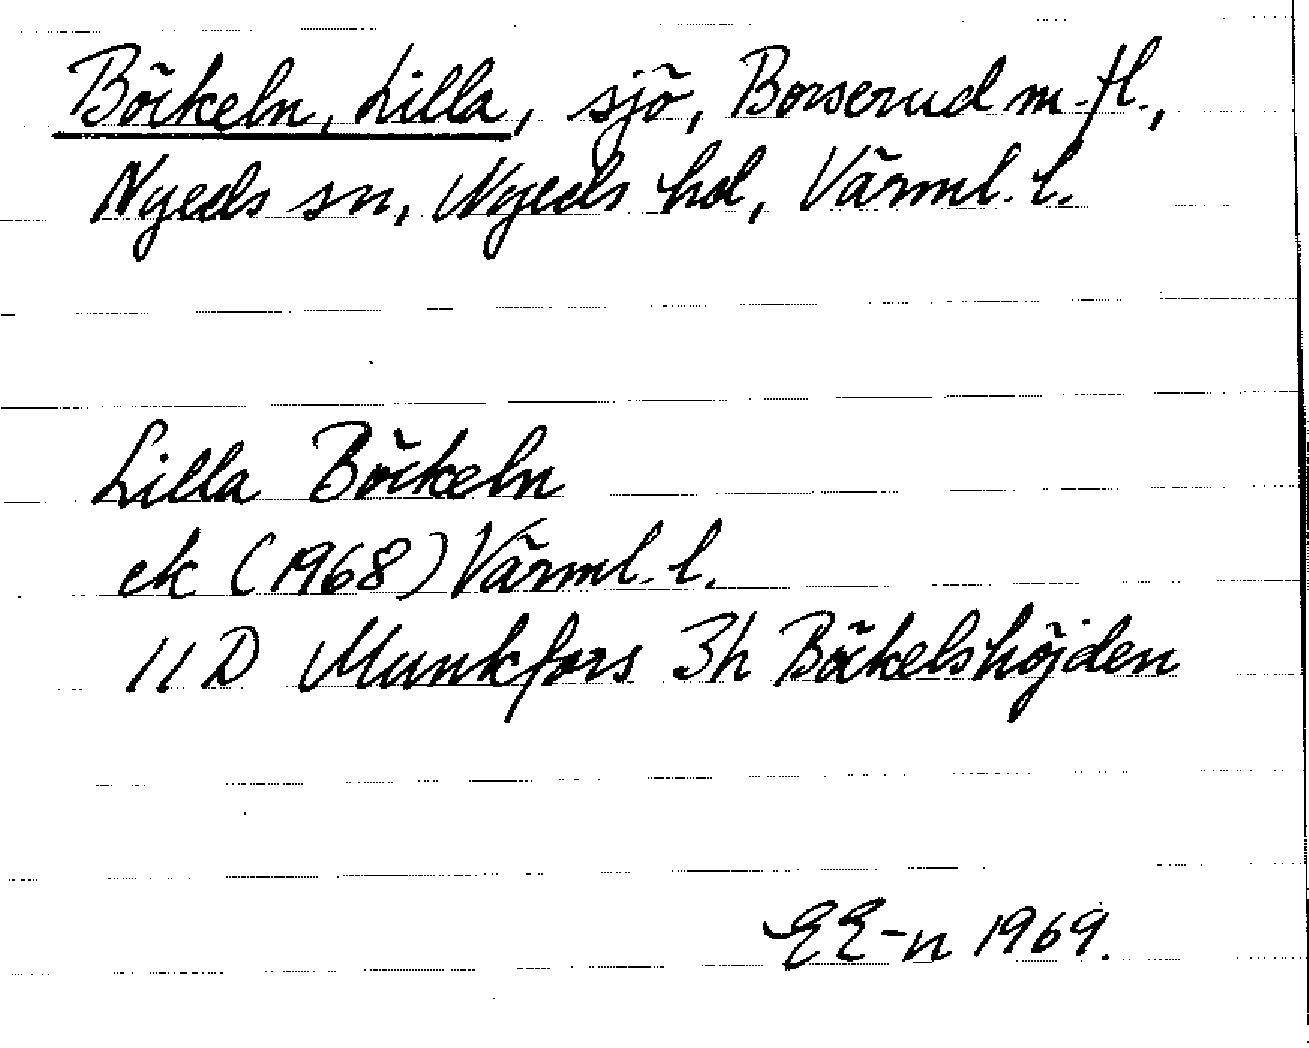 Böckeln, Lilla, sjö, Borserud m.fl.,
Nyeds sn, Nyeds hd, Värml. l.
Lilla Böckeln
ek (1968) Värml. l.
11 D Munkfors 3h Böckelshöjden
EE-n 1969.